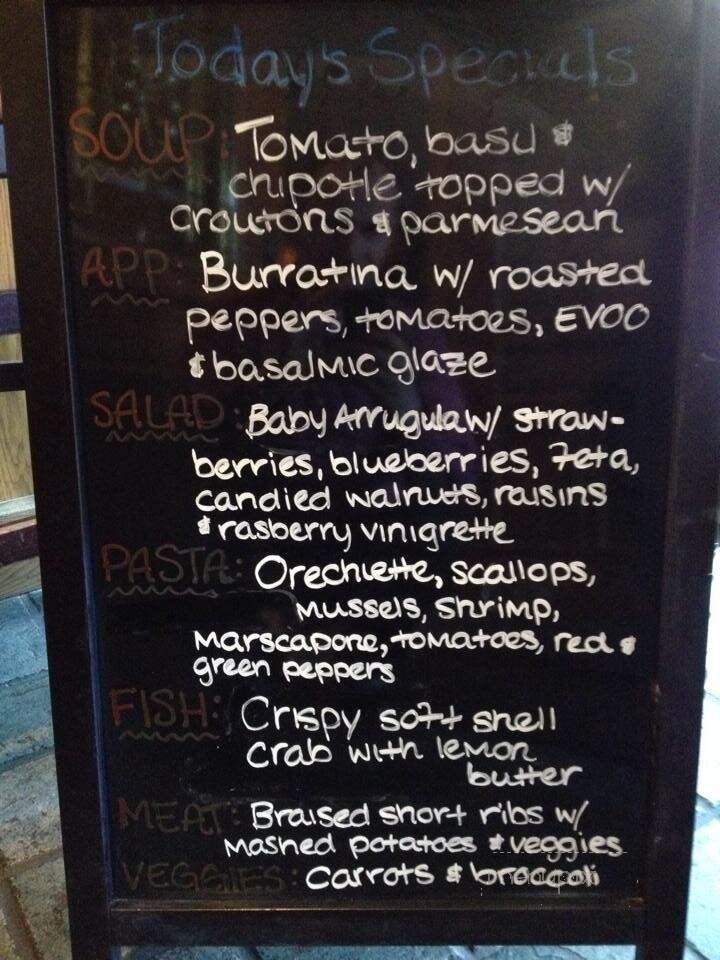 Today's Specials
SOUP: Tomato, basil &
chipotle topped w/
croutons & parmesean
APP: Burratina w/ roasted
peppers, tomatoes, EVOO
& basalmic glaze
SALAD: Baby Arrugula w/ straw-
berries, blueberries, feta,
candied walnuts, raisins
& rasberry vinigrette
PASTA: Orechiette, scallops,
mussels, shrimp,
marscapone, tomatoes, red &
green peppers
FISH: Crispy soft shell
crab with lemon
butter
MEAT: Braised short ribs w/
mashed potatoes & veggies
VEGGIES: carrots & broccoli